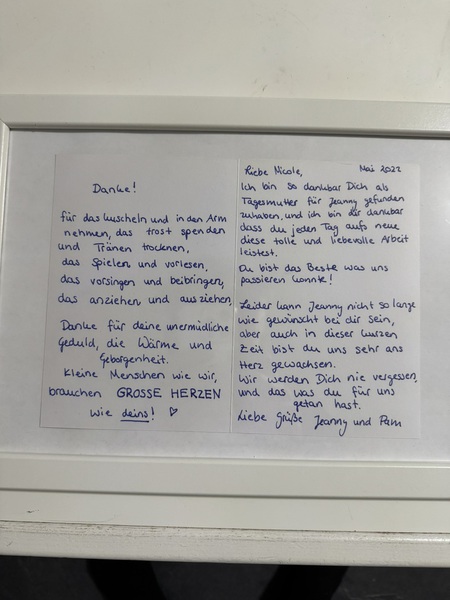 Danke!
für das kuscheln und in den Arm
nehmen, das trost spenden
und Tränen trocknen,
das Spielen und vorlesen,
das vorsingen und beibringen,
das anziehen und ausziehen,
Danke für deine unermüdliche
Geduld, die Wärme und
Geborgenheit.
Kleine Menschen wie wir,
brauchen GROSSE HERZEN
wie deins! ♡
Liebe Nicole, Mai 2022
Ich bin so dankbar Dich als
Tagesmutter für Jeanny gefunden
zuhaben, und ich bin dir dankbar
dass du jeden Tag aufs neue
diese tolle und liebevolle Arbeit
leistest.
Du bist das Beste was uns
passieren konnte!
Leider kann Jeanny nicht so lange
wie gewünscht bei dir sein,
aber auch in dieser kurzen
Zeit bist du uns sehr ans
Herz gewachsen.
Wir werden Dich nie vergessen,
und das was du für uns
getan hast.
Liebe Grüße Jeanny und Pam